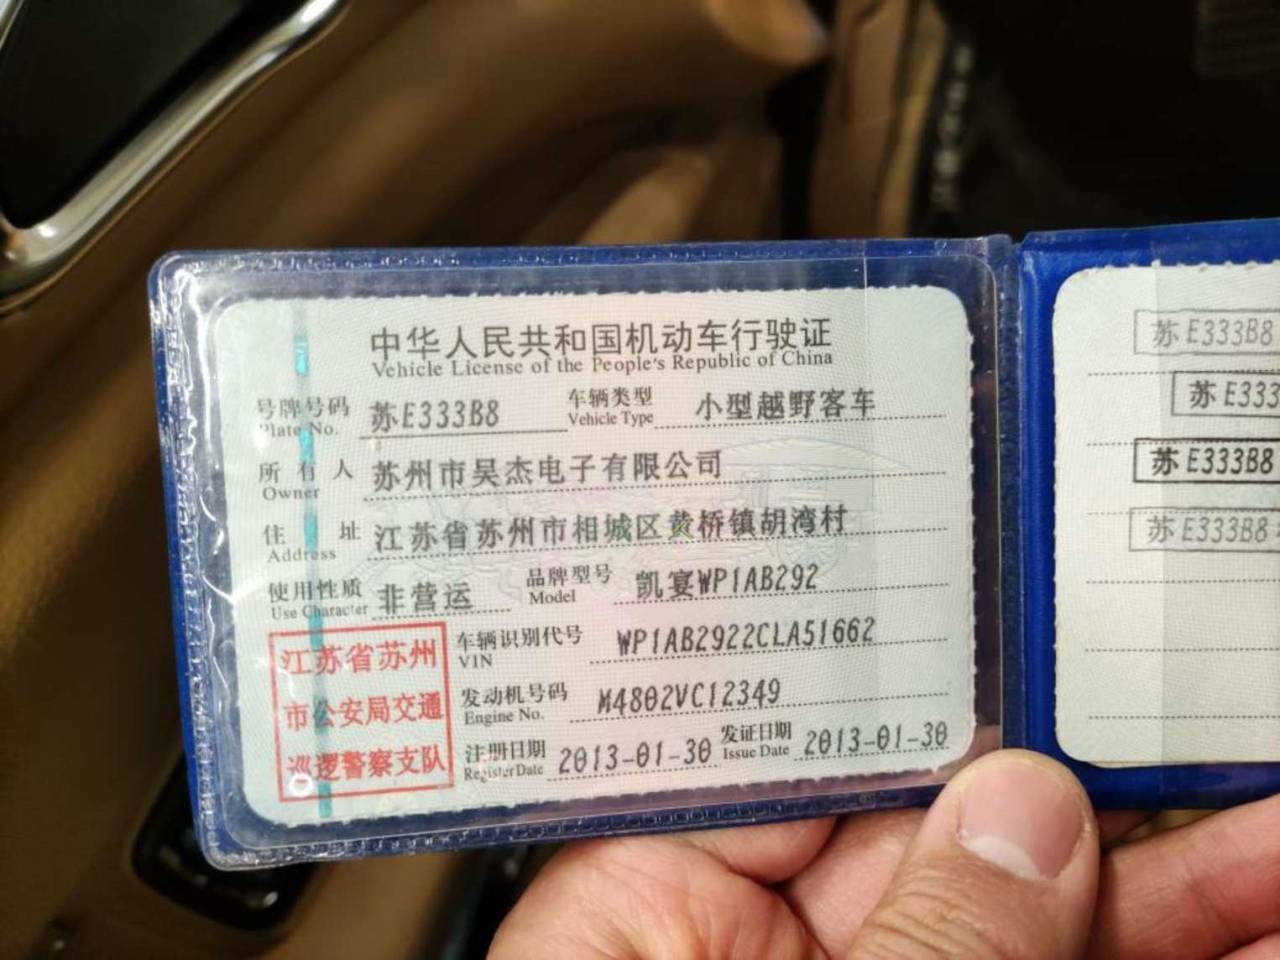 中华人民共和国机动车行驶证
Vehicle License of the People's Republic of China
号牌号码 苏E333B8 车辆类型 小型越野客车
Plate No. Vehicle Type
所有人 苏州市吴杰电子有限公司
Owner
住址 江苏省苏州市相城区黄桥镇胡湾村
Address
使用性质 非营运 品牌型号 凯宴WP1AB292
Use Character Model
车辆识别代号 WP1AB2922CLA51662
VIN
发动机号码 M4802VC12349
Engine No.
注册日期 2013-01-30 发证日期 2013-01-30
Register Date Issue Date
江苏省苏州
市公安局交通
巡逻警察支队
苏E333B8
苏E333
苏E333B8
苏E333B8